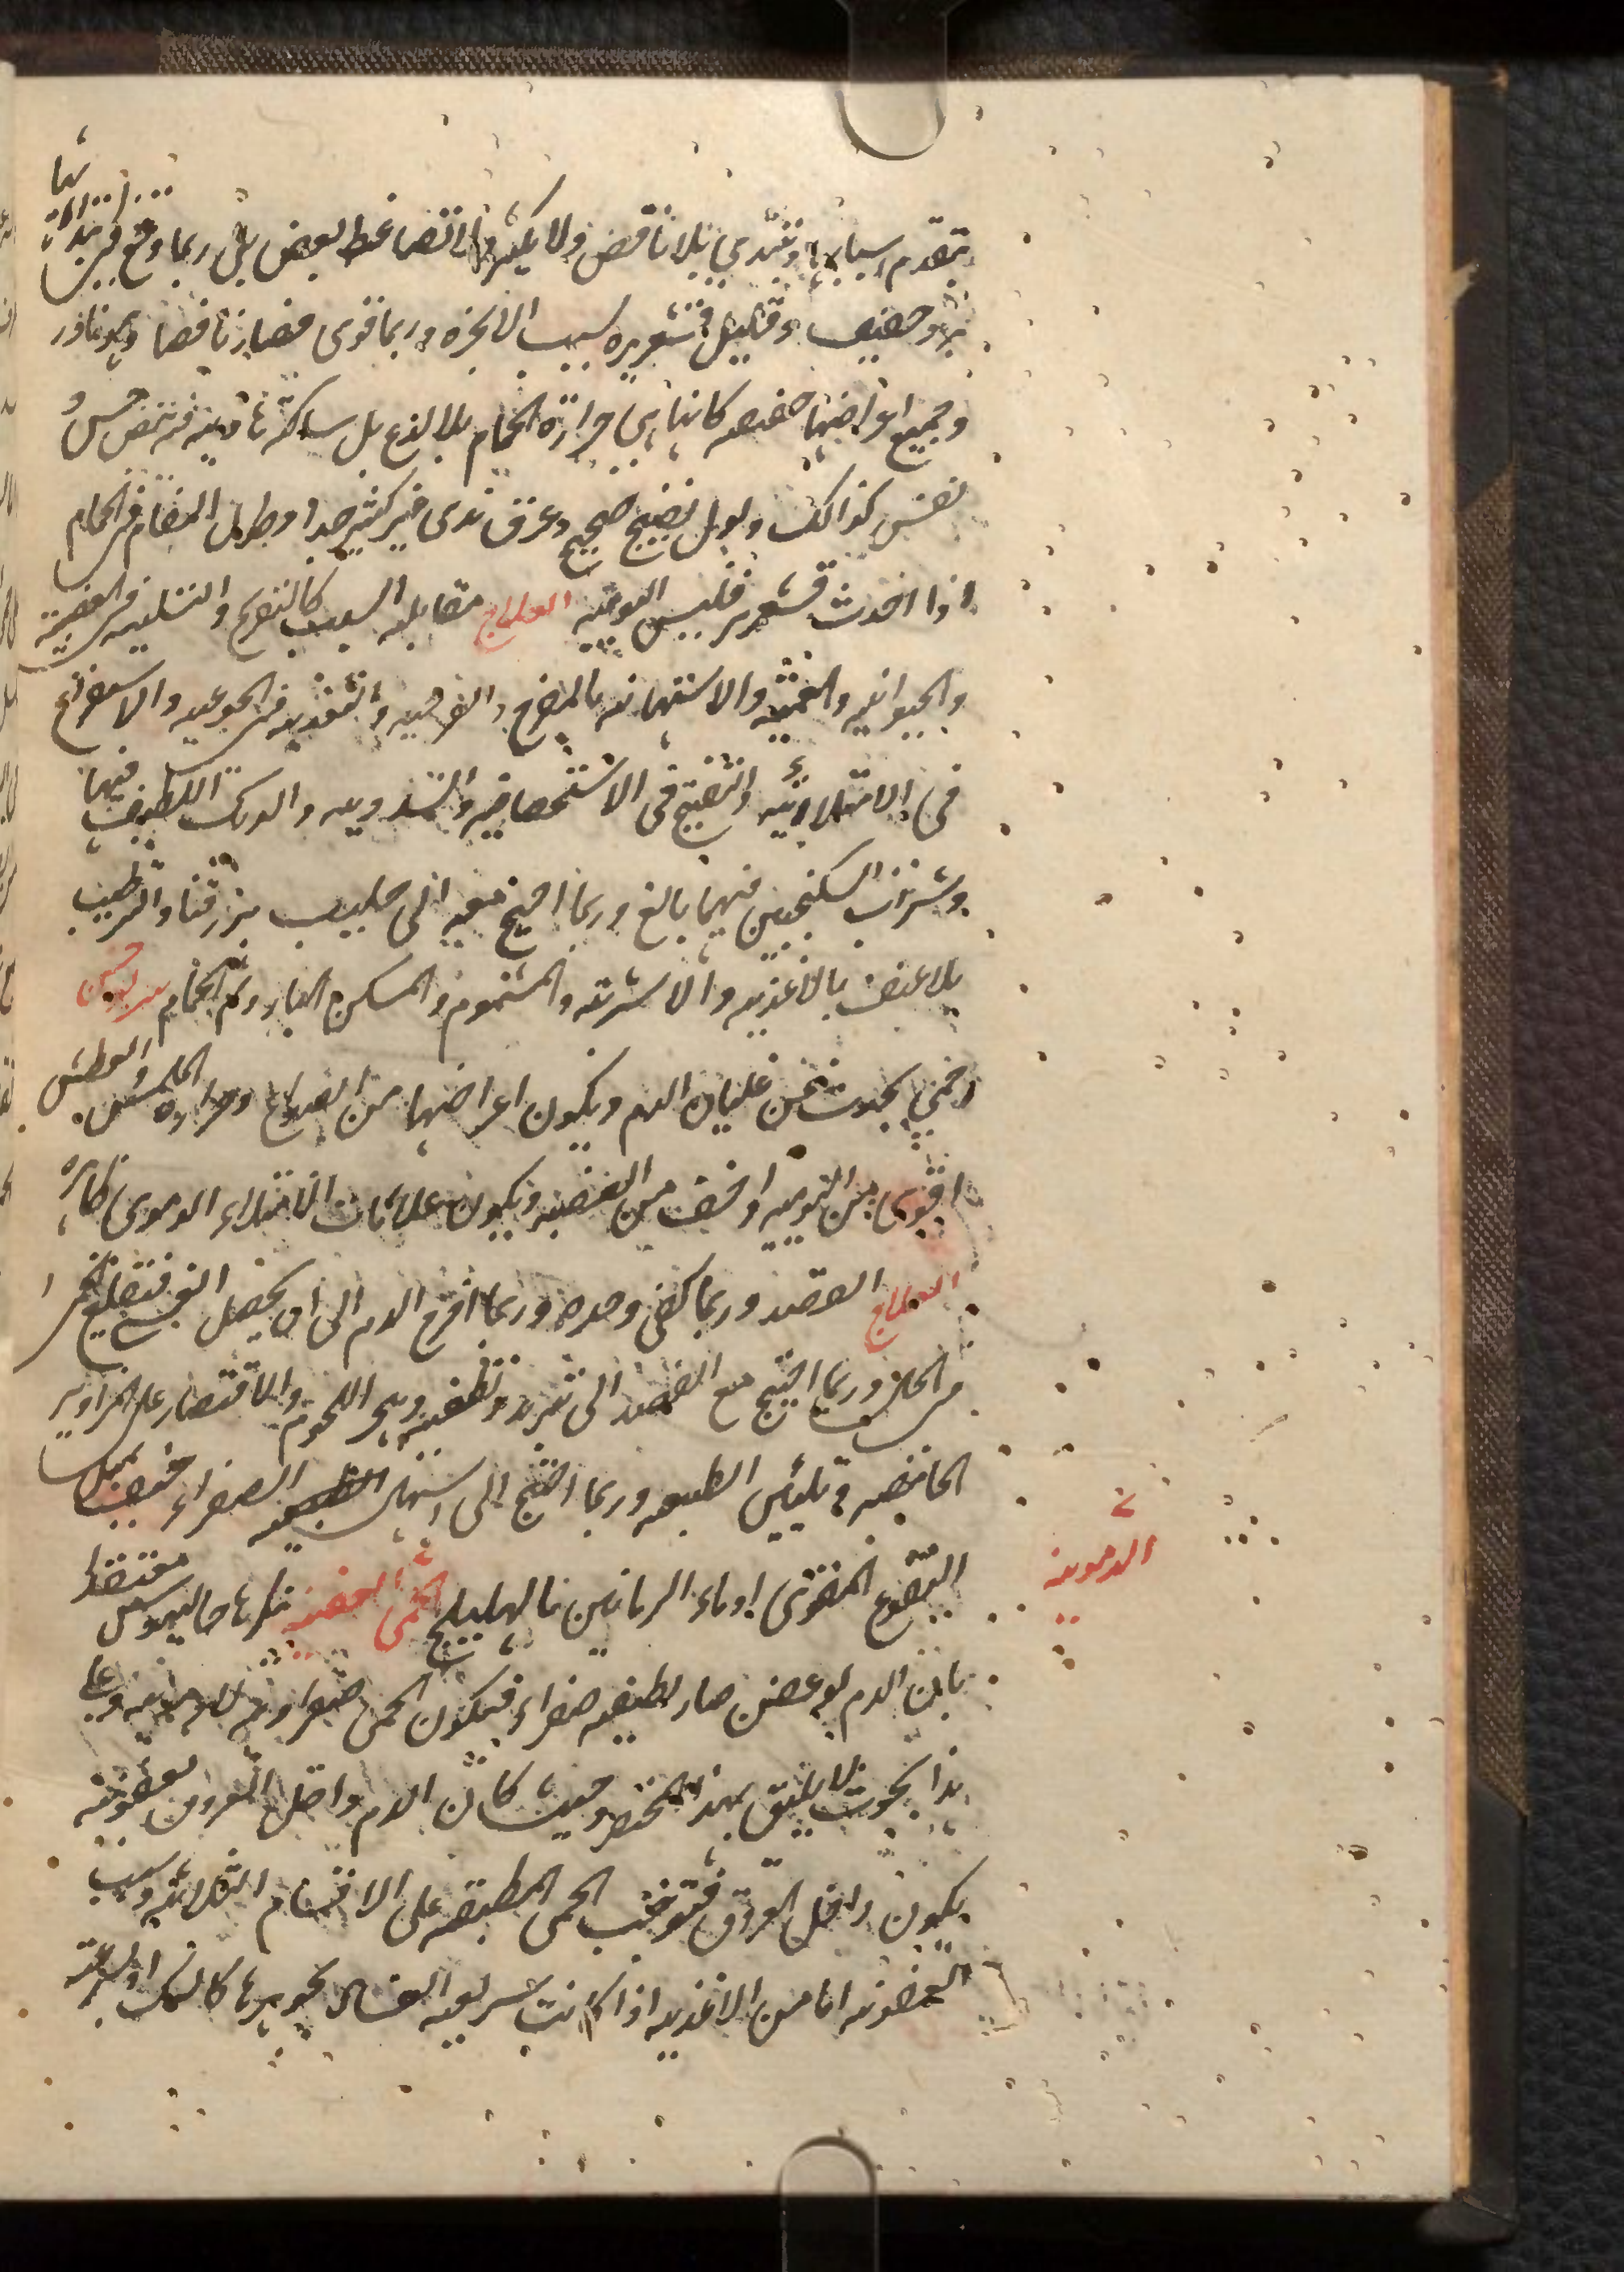 بتقدم اسبابها وتبتدى بلا نافض ولا يكثر والا تضاغط لنبض بل ربما وقع فى ابتدائها
برد خفيف وقليل قشعريره بسبب الابخره وربما قوى فصار نافضا وهو نادر
وجميع اعراضها خفيفه كانها هى حرارة الحمام بلا لذع بل ساكنة هادية فى نبض حسن و
نفس كذالك وبول نضيج صحيح وعرق ندى غير كثير جدا وطول المقام فى الحمام
اذا احدث قشعريره فليس اليوميه العلاج مقابله السبب كالتفريح والتسليه فى الغضبية
والحيوانيه والغميه والاستهانه بالمفرح والفرحيه والتغذيه فى الجوعيه والاستفراغ
فى الامتلائيه والتفتيح فى الاستحصافيه والسدديه والدلك اللطيف فيهما
وشراب السكنجبين فيهما بالغ وربما احتيج فيه الى حليب بزر قثا والترطيب
بلا عنف بالاغذيه والاشربه والمشموم والمسكن البارد ثم الحمام سونوخس
وهى يحدث من غليان الدم ويكون اعراضها من الصداع وحرارة الملمس والعطش
اقوى من اليوميه واخف من العفنيه ويكون علامات الامتلاء الدموى ظاهره
العلاج الفصد وربما كفى وحده وربما اخرج الدم الى ان يحصل الغشى فتقلع الحمى
فى الحال وربما احتيج مع الفصد الى تبريد وتطفيه وهجر اللحوم والاقتصار على المزاوير
الحامضه وتليين الطبيعه وربما احتيج الى اسهال الطبيعه الصفراء خفيف بمثل
النقوع المقوى او ماء الرمانين بالهليلج الحمى العفنيه فكرها جالينوس معتقدا
بان الدم لو عفن صار لطيفه صفراء فيكون الحمى صفراويه لا دمويه وعلى
الدمويه
هذا بحوث لا يليق بهذا المختصر وحيث كان الدم داخل العروق بعفونته
يكون داخل العروق فتوجب الحمى المطبقه على الاقسام الثلاثه وسبب
العفونه اما من الاغذيه اذا كانت سريعه الفساد بجوهرها كالسمك او لسرعته